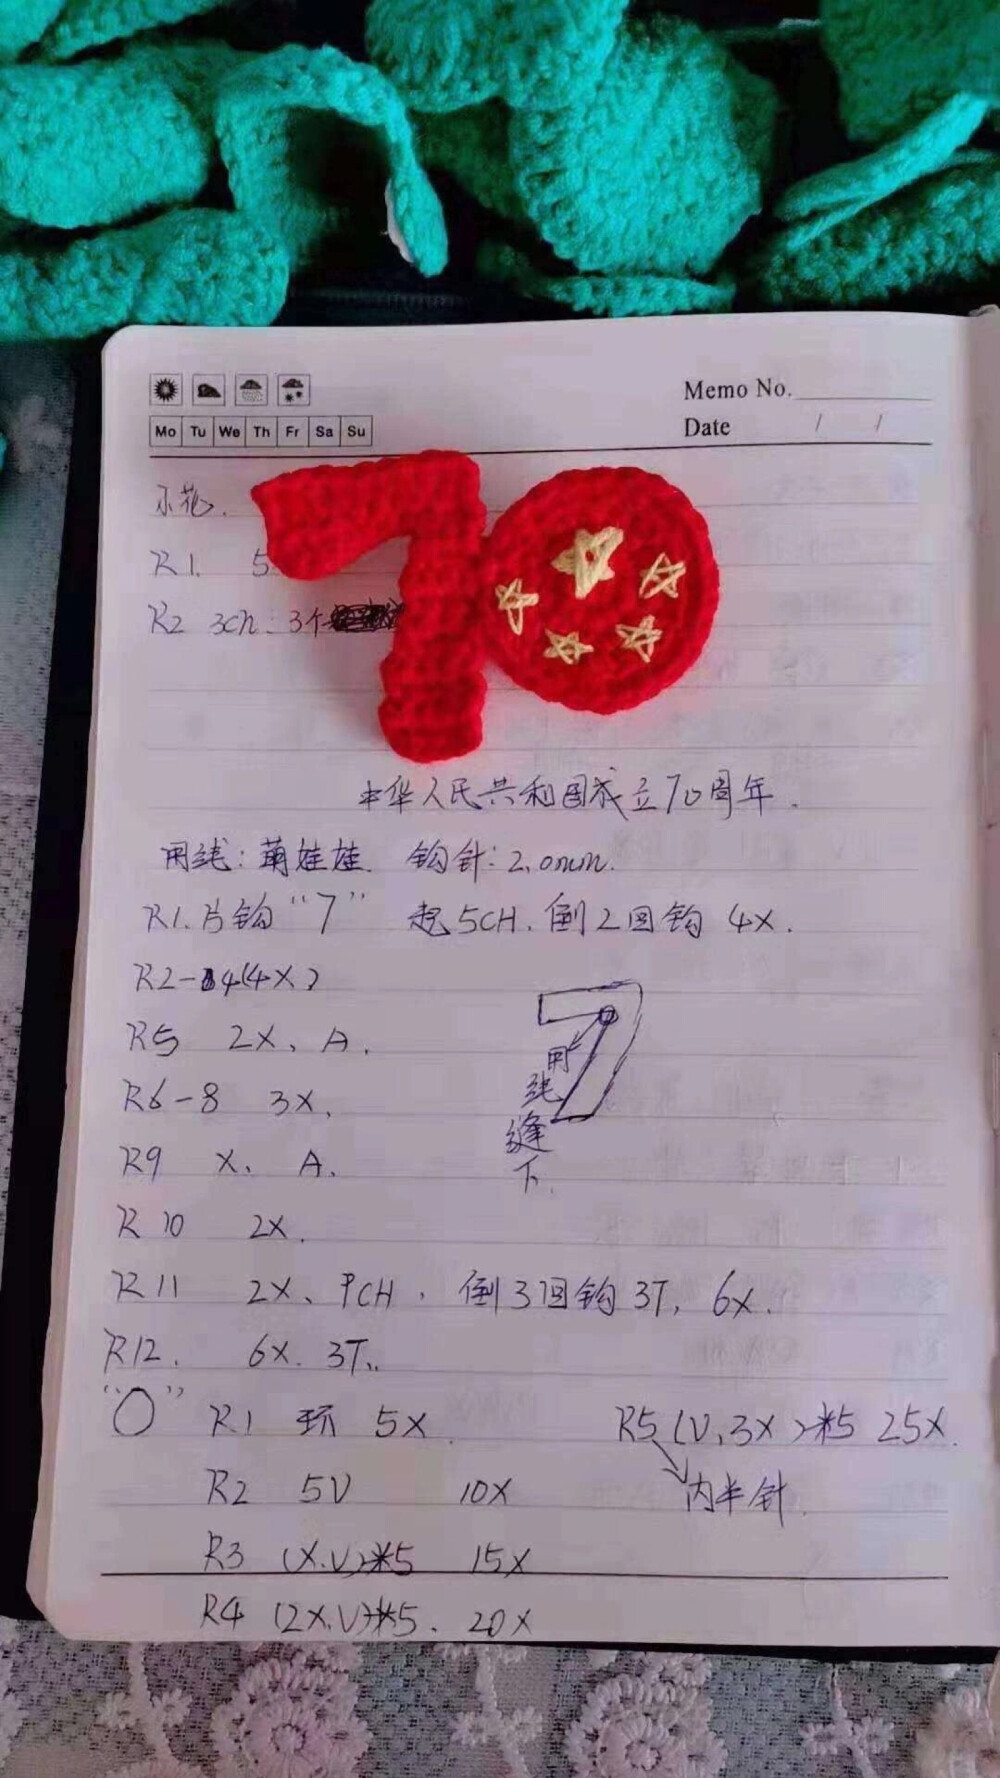 Memo No.
Mo Tu We Th Fr Sa Su
Date / /
小花.
R1. 5
R2 3CH. 3个
70
中华人民共和国成立70周年.
用线:萌娃娃. 钩针:2.0mm.
R1.片钩“7” 起5CH.倒2回钩 4X.
R2-4(4X)
R5 2X、A.
R6-8 3X.
R9 X、A.
R10 2X.
R11 2X、9CH,倒3回钩3T,6X.
R12. 6X.3T.
用线缝下.
“0” R1 环 5X.
R2 5V 10X
R3 (X.V)*5 15X
R4 (2X.V)*5. 20X
R5(V,3X)*5 25X.
内半针.